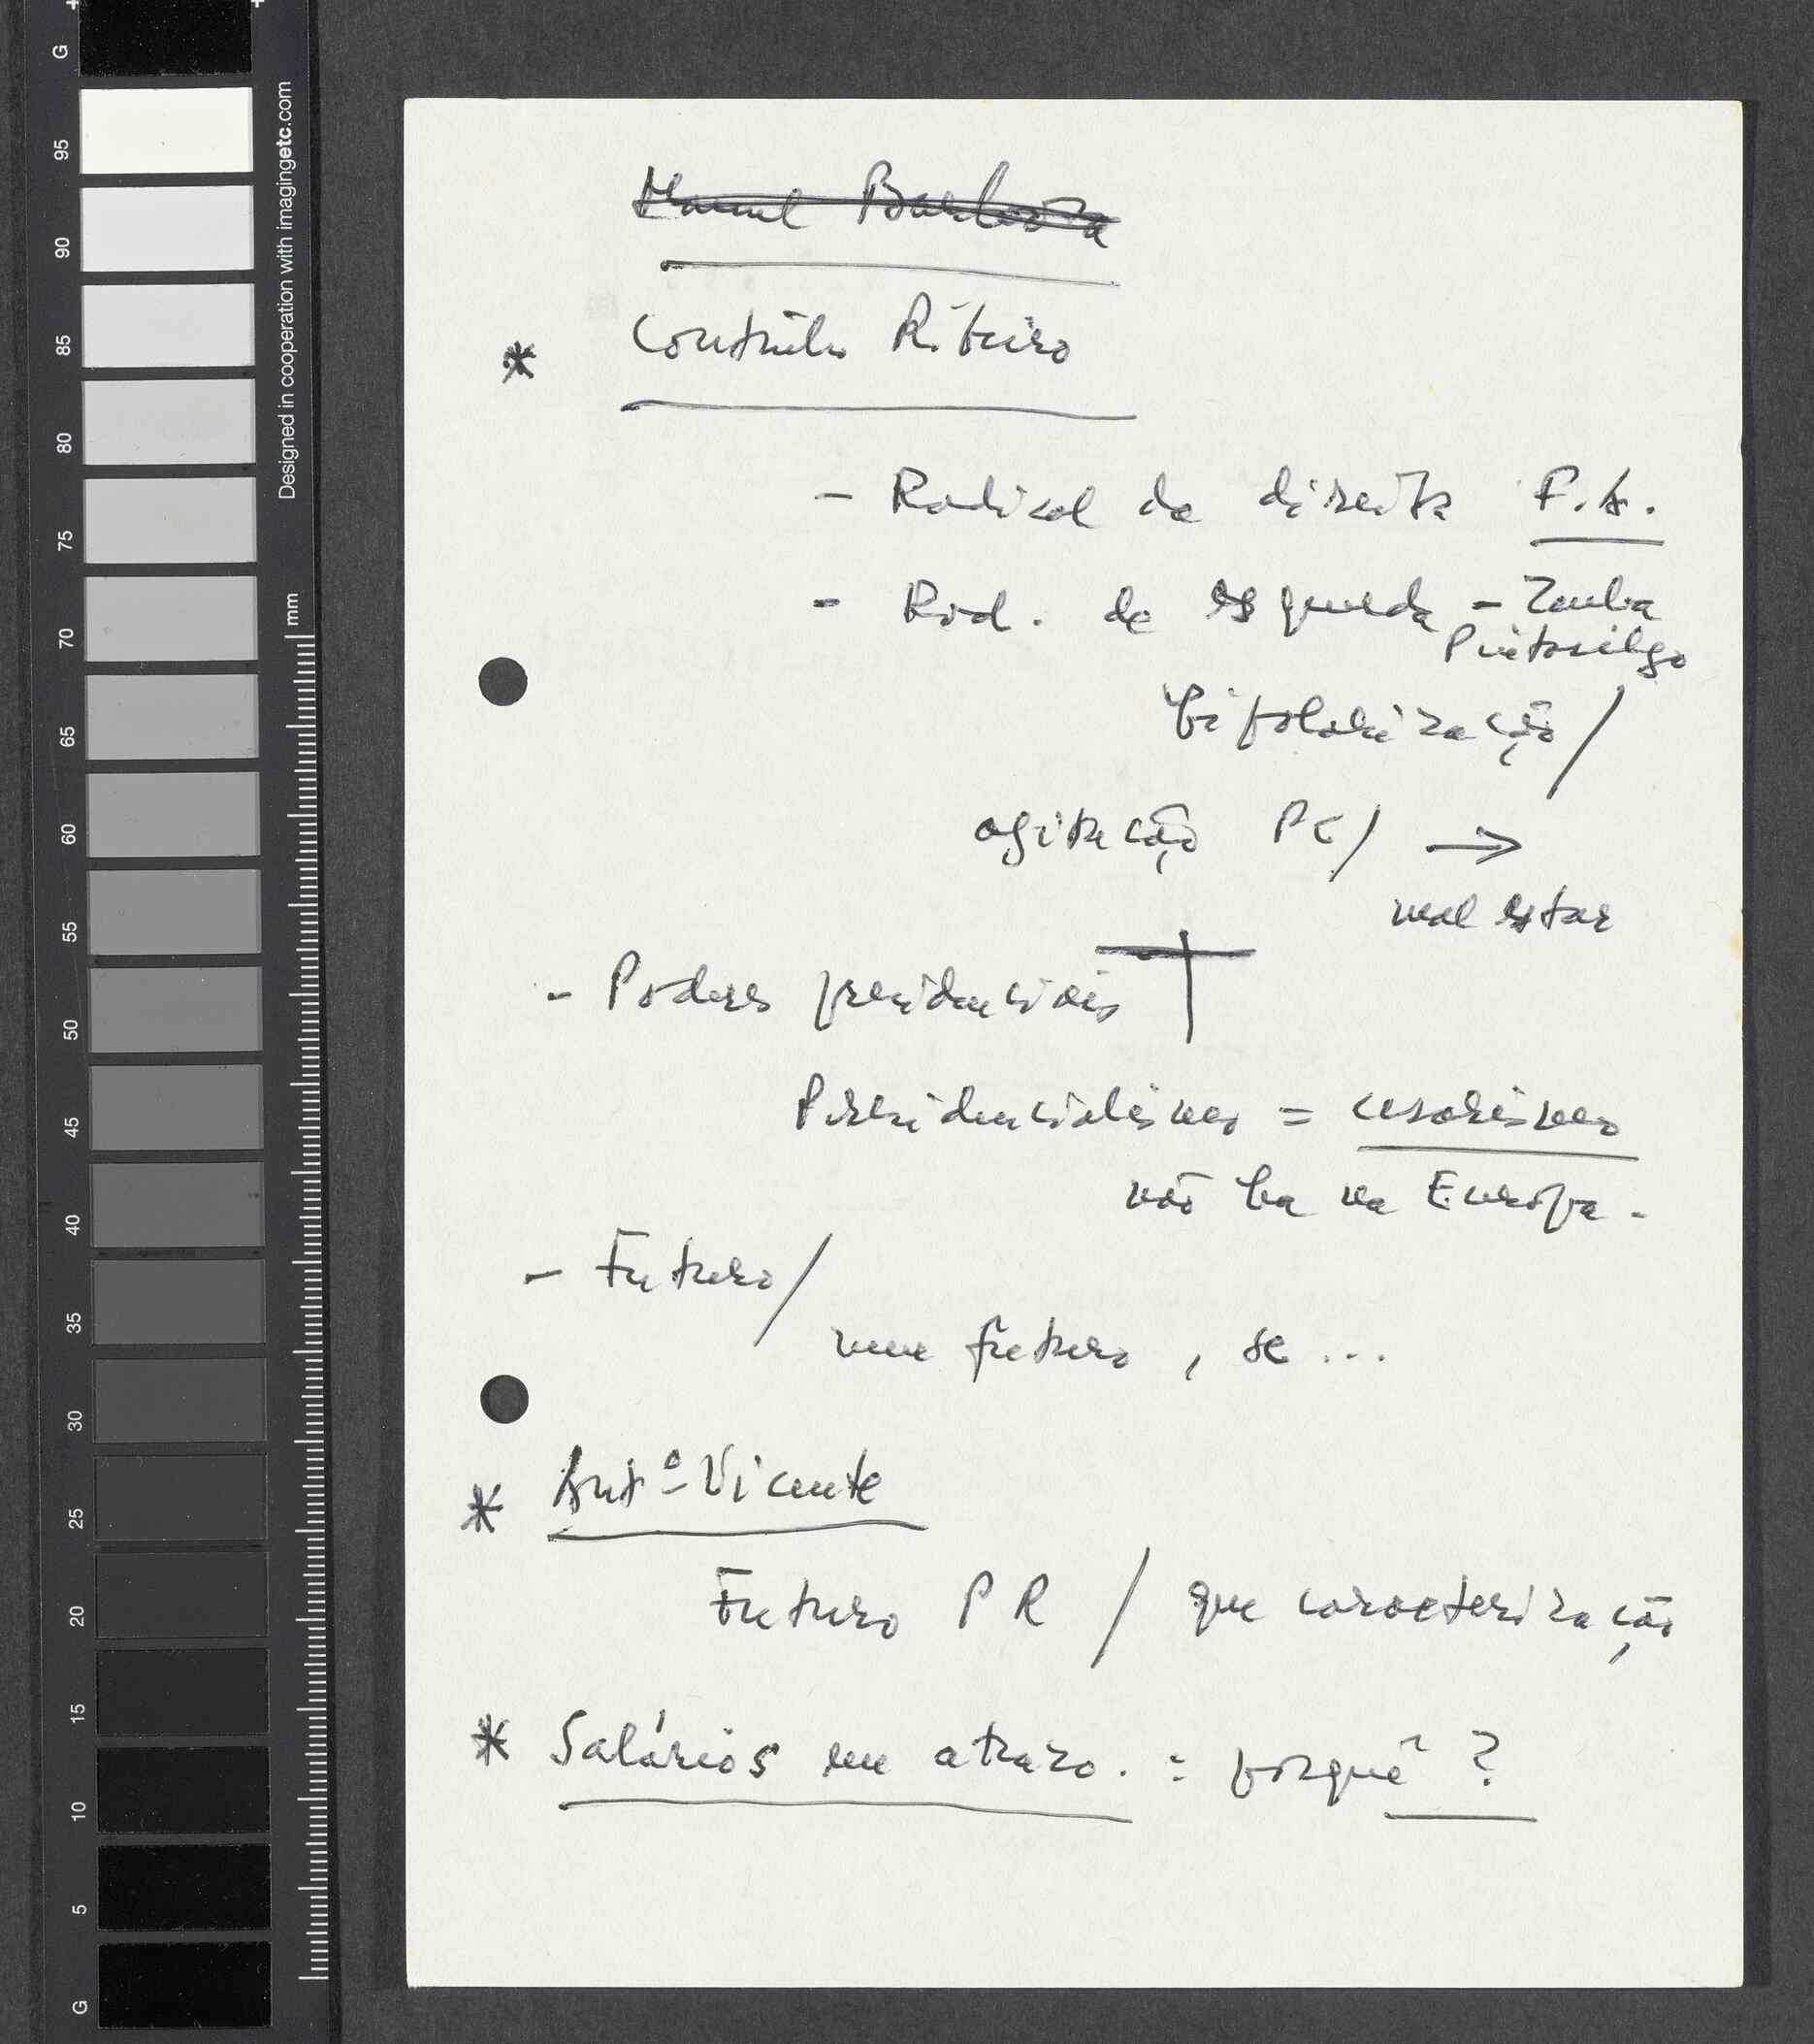 Manuel Barbosa
* Coutinho Ribeiro
- Radical da direita F.A.
- Rad. de esquerda - Zenha
Pintasilgo
bipolarização /
agitação PC / →
mal estar
- Poderes presidenciais
Presidencialismo = cesarismo
não ha na Europa.
- Futuro /
um futuro, se ...
* Antº - Vicente
Futuro PR / que caracterização
* Salários em atrazo. = porquê ?
G
95
90
85
80
75
70
65
60
55
50
45
40
35
30
25
20
15
10
5
G
Designed in cooperation with imagingetc.com
mm